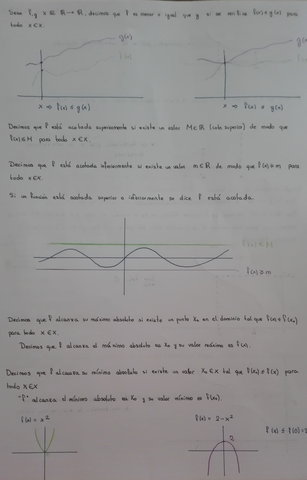 Sean f, g X ⊆ R → R, decimos que f es menor o igual que g si se verifica f(x) ≤ g(x) para
todo x ∈ X.
g(x) g(x)
f(x)
x ⇒ f(x) ≤ g(x) x ⇒ f(x) ≤ g(x)
Decimos que f está acotada superiormente si existe un valor M ∈ R (cota superior) de modo que
f(x) ≤ M para todo x ∈ X.
Decimos que f está acotada inferiormente si existe un valor m ∈ R de modo que f(x) ≥ m para
todo x ∈ X.
Si una función está acotada superior e inferiormente se dice f está acotada.
f(x) ≤ M
f(x) ≥ m
Decimos que f alcanza su máximo absoluto si existe un punto x₀ en el dominio tal que f(x) ≤ f(x₀)
para todo x ∈ X.
Decimos que f alcanza el máximo absoluto en x₀ y su valor máximo es f(x).
Decimos que f alcanza su mínimo absoluto si existe un valor x₀ ∈ X tal que f(x₀) ≤ f(x) para
todo x ∈ X
"f" alcanza el mínimo absoluto en x₀ y su valor mínimo es f(x₀).
f(x) = x² f(x) = 2 - x²
2 f(x) ≤ f(0) = 2